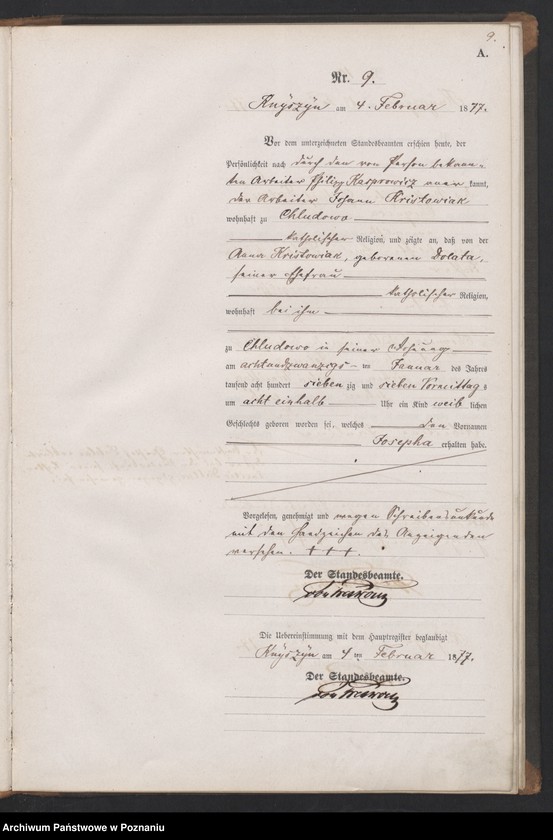 9.
A.
Nr. 9.
Knyszyn am 4. Februar 1877.
Vor dem unterzeichneten Standesbeamten erschien heute, der
Persönlichkeit nach durch den von Person bekann-
ten Arbeiter Philipp Kasprowicz aner kannt,
der Arbeiter Johann Kristowiak
wohnhaft zu Chludowo
katholischer Religion, und zeigte an, daß von der
Anna Kristowiak, geborenen Dolata,
seiner Ehefrau
katholischer Religion,
wohnhaft bei ihm
zu Chludowo in seiner Wohnung
am achtundzwanzigs- ten Januar des Jahres
tausend acht hundert sieben zig und sieben Vormittag s
um acht einhalb Uhr ein Kind weib lichen
Geschlechts geboren worden sei, welches den Vornamen
Josepha erhalten habe.
Vorgelesen, genehmigt und wegen Schreibensunkunde
mit den Handzeichen des Anzeigenden
versehen. + + +.
Der Standesbeamte.
Die Uebereinstimmung mit dem Hauptregister beglaubigt
Knyszyn am 4 ten Februar 1877.
Der Standesbeamte.
Archiwum Państwowe w Poznaniu